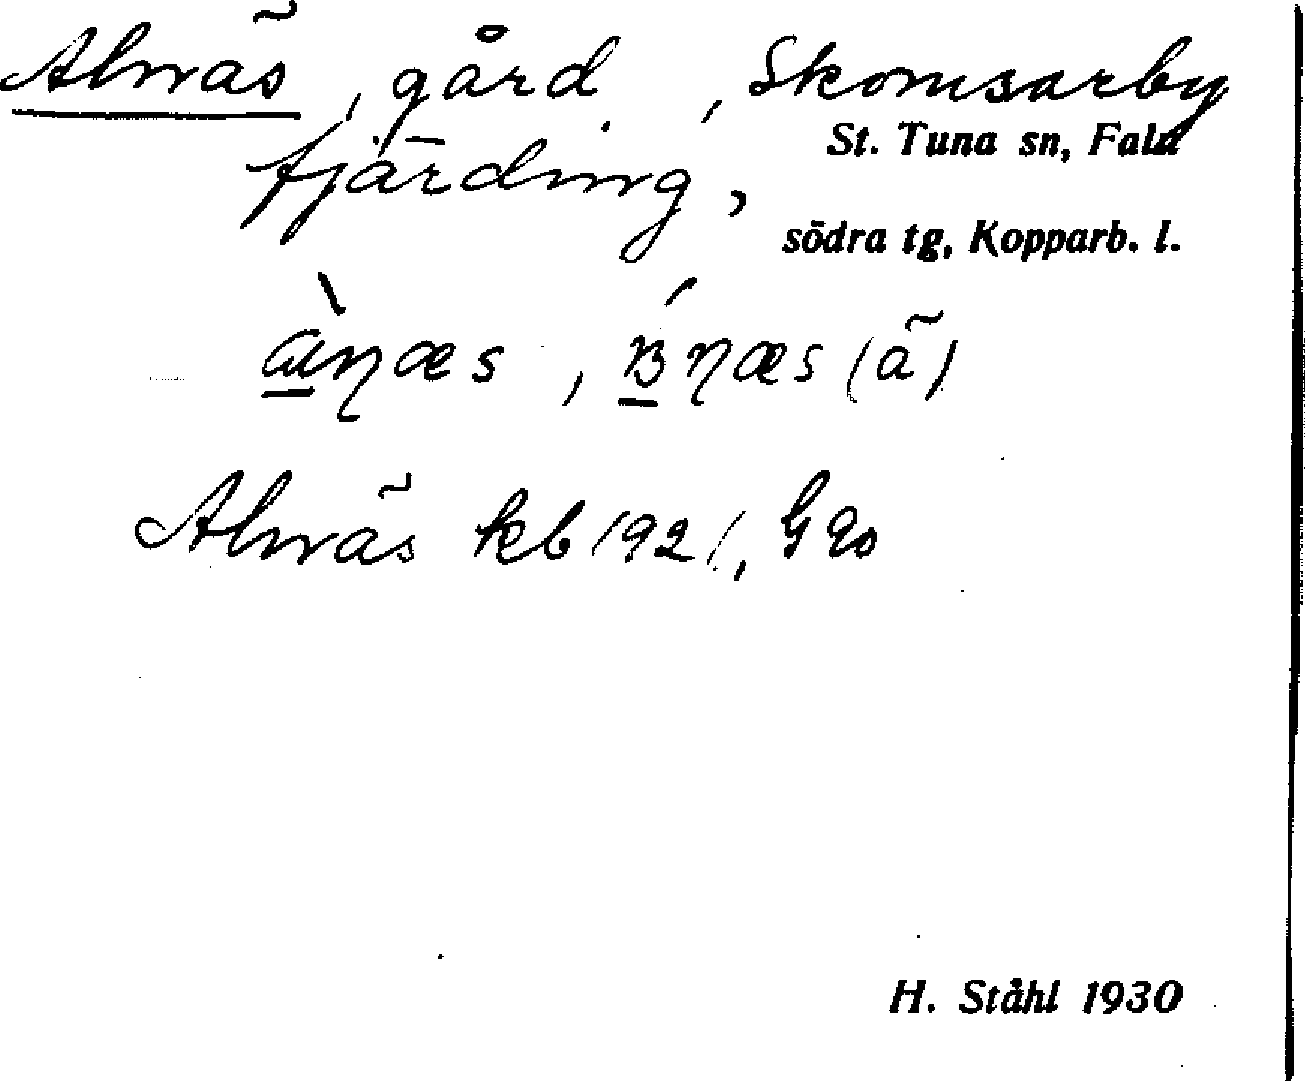 Alnäs, gård, Skomsarby
St. Tuna sn, Falu
fjärding,
södra tg, Kopparb. l.
Alnäs kb 1921, GEo
H. Ståhl 1930